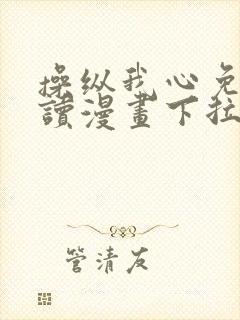 操纵我心免
讀漫畫下拉
管清友